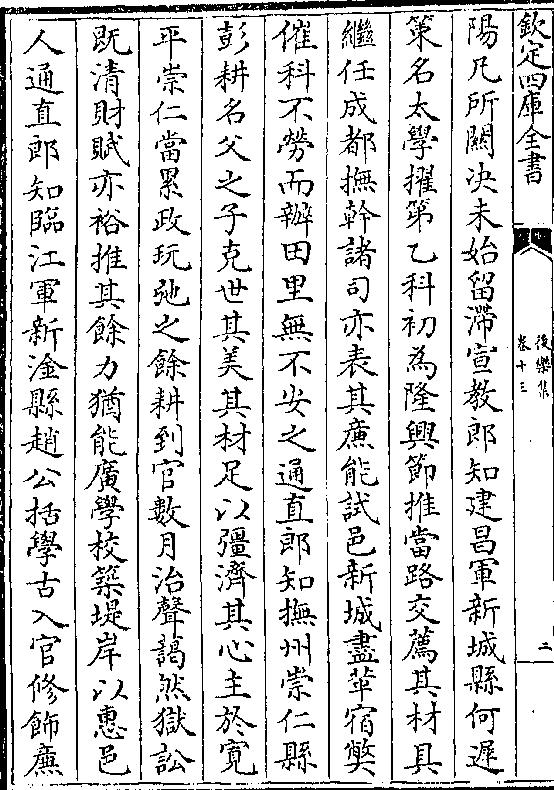 欽定四庫全書
後樂集
卷十三
二
陽凡所關决未始留滯宣教郎知建昌軍新城縣何遲
策名太學擢第乙科初為隆興節推當路交薦其材具
繼任成都撫幹諸司亦表其廉能試邑新城盡革宿獘
催科不勞而辦田里無不安之通直郎知撫州崇仁縣
彭耕名父之子克世其美其材足以彊濟其心主於寛
平崇仁當累政玩弛之餘耕到官數月治聲藹然獄訟
既清財賦亦裕推其餘力猶能廣學校築堤岸以惠邑
人通直郎知臨江軍新淦縣趙公括學古入官修飾廉